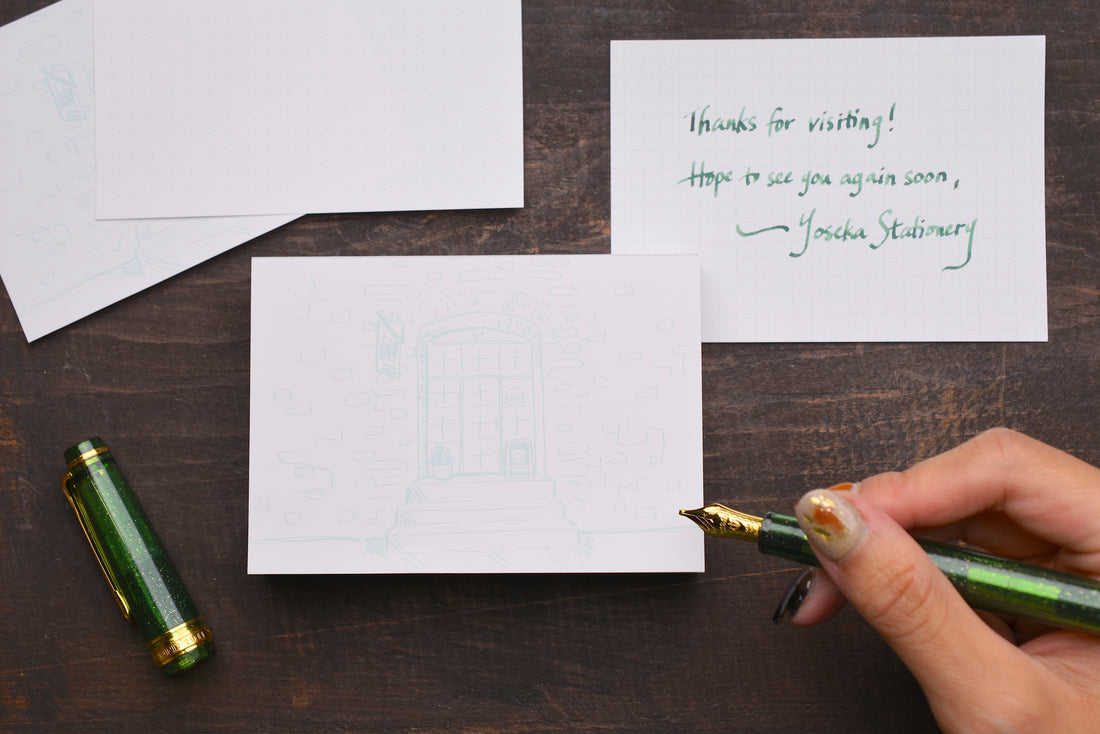 Thanks for visiting!
Hope to see you again soon,
— Yoseka Stationery